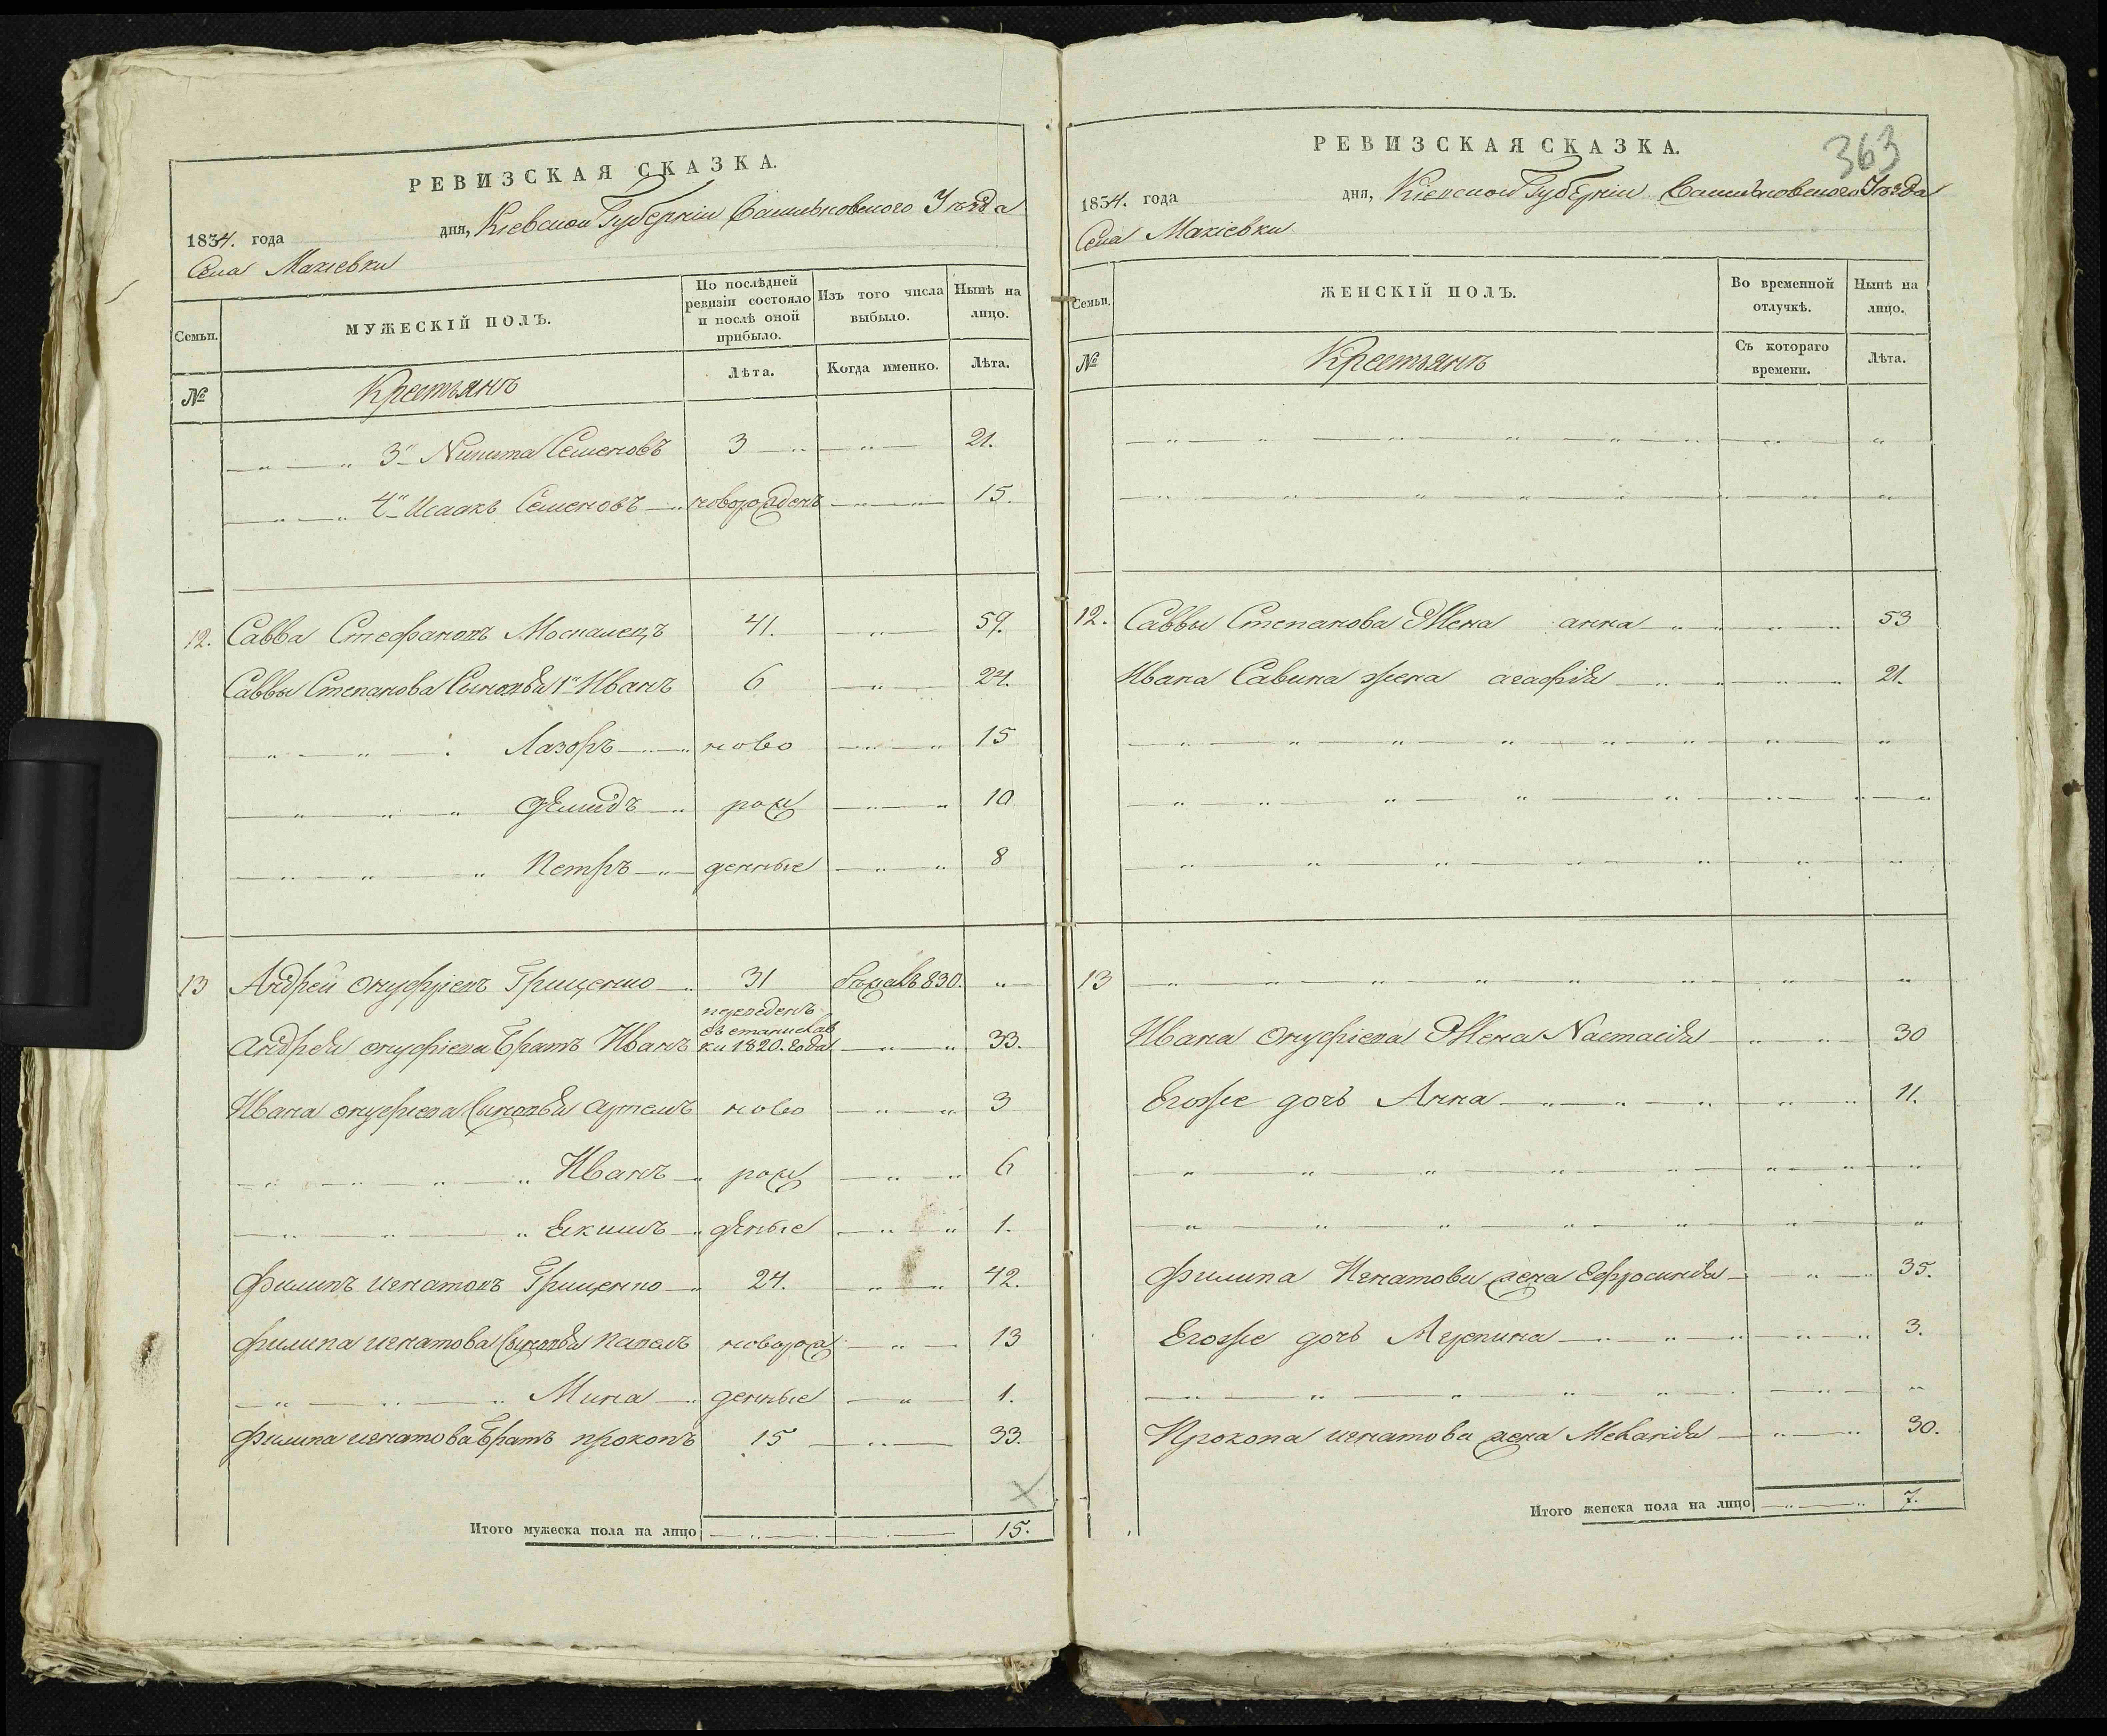 РЕВИЗСКАЯ СКАЗКА.
1834. года дня, Кіевской Губерніи Васильковского Уѣзда
Села Макіевки
Семьи. МУЖЕСКІЙ ПОЛЪ. По послѣдней ревизіи состояло и послѣ оной прибыло. Изъ того числа выбыло. Нынѣ на лицо.
№ Крестьянъ Лѣта. Когда именно. Лѣта.
— " — " 3й Никита Семеновъ 3 — " — " — 21.
— " — " 4й Исаакъ Семеновъ — " новорожденъ — " — 15.
12. Савва Стефановъ Москалецъ 41. — " — 59.
Саввы Степанова Сыновья 1й Иванъ 6 — " — 24.
— " — " — " Лазоръ — " ново — " — " 15
— " — " — " Демидъ — " рож — " — " 10
— " — " — " Петръ — " — денные — " — " 8
13 Андрей Онуфріевъ Грищенко — " 31 бѣжалъ 830. "
Андрея онуфріева Братъ Иванъ переведенъ съ станислав ки 1820. года — " — " 33.
Ивана онуфріева Сыновья артемъ ново — " — " 3
— " — " — " Иванъ — " рож — " — " 6
— " — " — " Екимъ — " деные — " — " 1.
Филипъ игнатовъ Грищенко — " 24. — " — " 42.
Филипа игнатова Сыновья павелъ новорож — " — 13
— " — " — " Мина — " денные — " — 1.
Филипа игнатова Братъ прокопъ 15 — " — 33.
Итого мужеска пола на лицо — " — " — 15.
363
РЕВИЗСКАЯ СКАЗКА.
1834. года дня, Кіевской Губерніи Васильковского Уѣзда
Села Макіевки
Семьи. ЖЕНСКІЙ ПОЛЪ. Во временной отлучкѣ. Нынѣ на лицо.
№ Крестьянъ Съ котораго времени. Лѣта.
— " — " — " — " — " — " — " — "
— " — " — " — " — " — " — " — "
12. Саввы Степанова Жена анна — " — " — " 53
Ивана Савина жена агафія — " — " — " 21.
— " — " — " — " — " — " — " — "
— " — " — " — " — " — " — " — "
— " — " — " — " — " — " — " — "
13 — " — " — " — " — " — " — " — "
Ивана Онуфріева Жена Настасія — " — " 30
Егоже дочь Анна — " — " — " — " 11.
— " — " — " — " — " — " — " — "
— " — " — " — " — " — " — " — "
Филипа Игнатова жена Ефросинія — " — 35.
Егоже дочь Агрепина — " — " — " — " 3.
— " — " — " — " — " — " — " — "
Прокопа игнатова жена Меланія — " — " 30.
Итого женска пола на лицо — " — " 7.